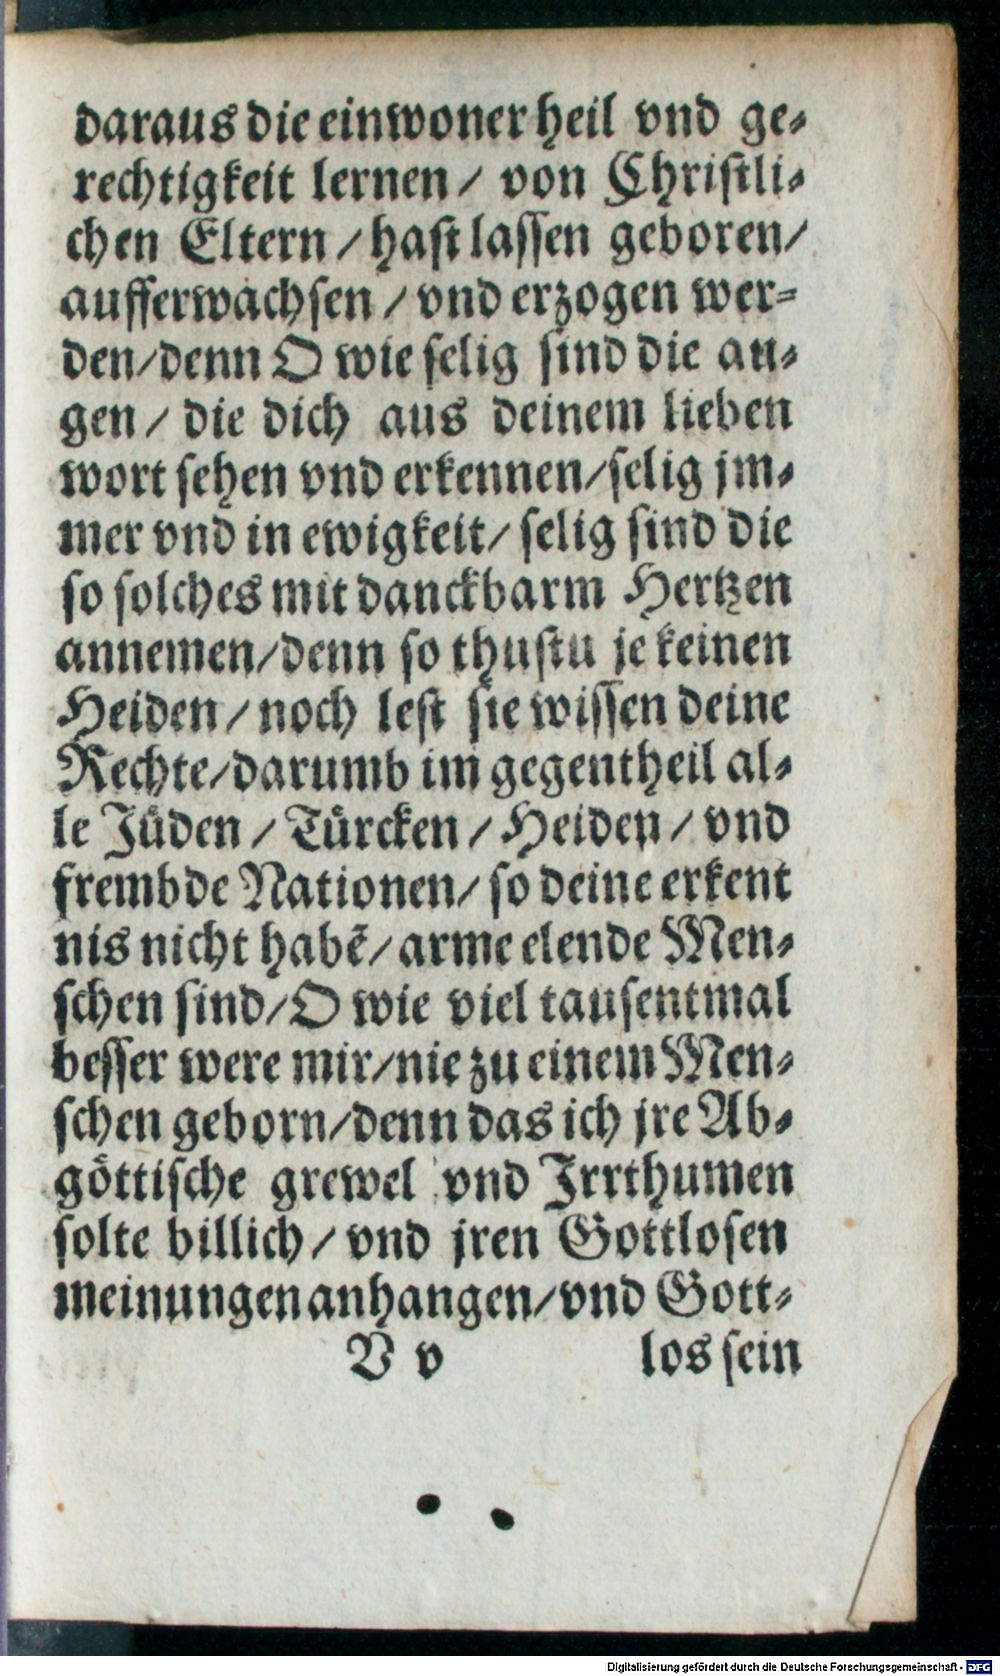 daraus die einwoner heil vnd ge⸗
rechtigkeit lernen / von Christli⸗
chen Eltern / hast lassen geboren/
aufferwachsen / vnd erzogen wer⸗
den/denn O wie selig sind die au⸗
gen / die dich aus deinem lieben
wort sehen vnd erkennen/selig jm⸗
mer vnd in ewigkeit/ selig sind die
so solches mit danckbarm Hertzen
annemen/denn so thustu je keinen
Heiden / noch lest sie wissen deine
Rechte/darumb im gegentheil al⸗
le Jüden / Türcken / Heiden / vnd
frembde Nationen/ so deine erkent
nis nicht habẽ/ arme elende Men⸗
schen sind/O wie viel tausentmal
besser were mir/nie zu einem Men⸗
schen geborn/denn das ich jre Ab⸗
göttische grewel vnd Irrthumen
solte billich / vnd jren Gottlosen
meinungen anhangen/vnd Gott⸗
V v los sein
Digitalisierung gefördert durch die Deutsche Forschungsgemeinschaft - DFG